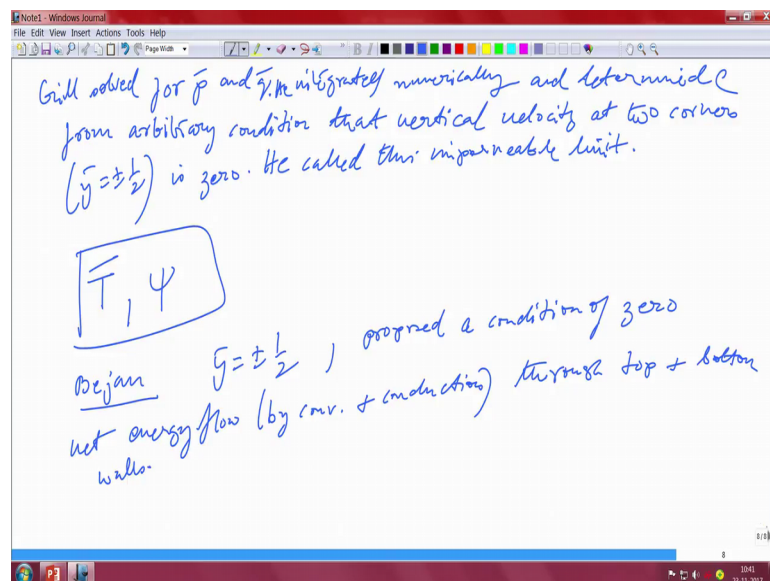 Note1 - Windows Journal
File Edit View Insert Actions Tools Help
Page Width
Gill solved for p̄ and q̄. He integrated numerically and determined C
from arbitrary condition that vertical velocity at two corners
(ȳ = ± 1/2) is zero. He called this impermeable limit.
T̄, ψ
Bejan ȳ = ± 1/2, proposed a condition of zero
net energy flow (by conv. + conduction) through top + bottom
walls.
8/8
8
10:41
23-11-2017